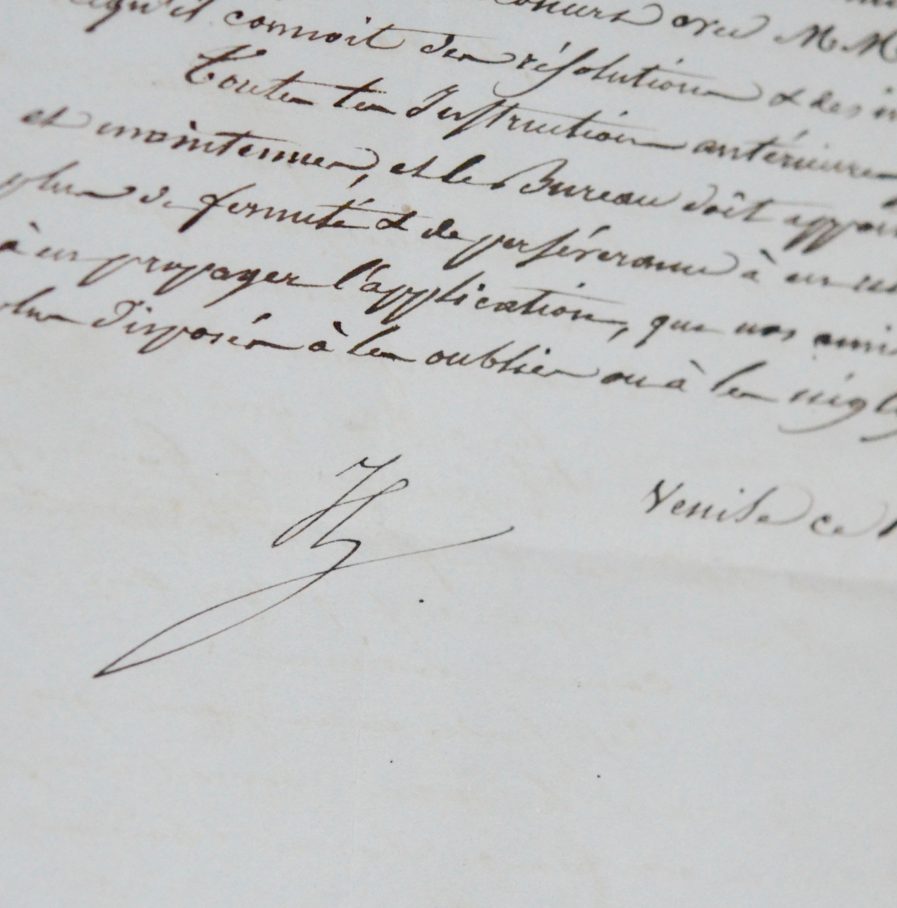 concurs avec MM
qu'il connoit des résolutions & des in
Toutes les Instructions antérieures
et maintenues, et le Bureau doit appor
plus de fermeté & de persévérance à en
à en propager l'application, que nos amis
plus disposés à les oublier ou à les négl
Venise ce